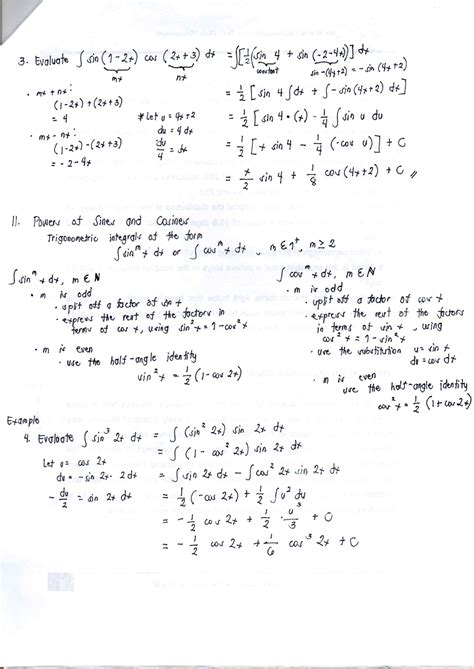 3. Evaluate ∫ sin (1-2x) cos (2x+3) dx = ∫[½(sin 4 + sin (-2-4x))] dx
mx nx constant sin -(4x+2) = - sin (4x+2)
• mx + nx:
(1-2x) + (2x+3)
= 4
• mx - nx:
(1-2x) - (2x+3)
= -2 - 4x
* Let u = 4x+2
du = 4 dx
du/4 = dx
= 1/2 [ sin 4 ∫dx + ∫ - sin (4x+2) dx]
= 1/2 [ sin 4 • (x) - 1/4 ∫ sin u du
= 1/2 [ x sin 4 - 1/4 (-cos u)] + C
= x/2 sin 4 + 1/8 cos (4x+2) + C //
II. Powers of Sines and Cosines
Trigonometric integrals of the form
∫ sinᵐ x dx or ∫ cosᵐ x dx, m ≥ 2
∫ sinᵐ x dx, m ∈ N
• m is odd
• split off a factor of sin x
• express the rest of the factors
in terms of cos x, using sin² x = 1 - cos² x
• m is even
• use the half-angle identity
sin² x = 1/2 (1 - cos 2x)
∫ cosᵐ x dx, m ∈ N
• m is odd
• split off a factor of cos x
• express the rest of the factors
in terms of sin x, using
cos² x = 1 - sin² x
• use the substitution u = sin x
du = cos dx
• m is even
use the half-angle identity
cos² x = 1/2 (1 + cos 2x)
Example
4. Evaluate ∫ sin³ 2x dx = ∫ (sin² 2x) sin 2x dx
Let u = cos 2x
du = - sin 2x • 2 dx
- du/2 = sin 2x dx
= ∫ (1 - cos² 2x) sin 2x dx
= ∫ sin 2x dx - ∫ cos² 2x sin 2x dx
= 1/2 (-cos 2x) + 1/2 ∫ u² du
= - 1/2 cos 2x + 1/2 • u³/3 + C
= - 1/2 cos 2x + 1/6 cos³ 2x + C